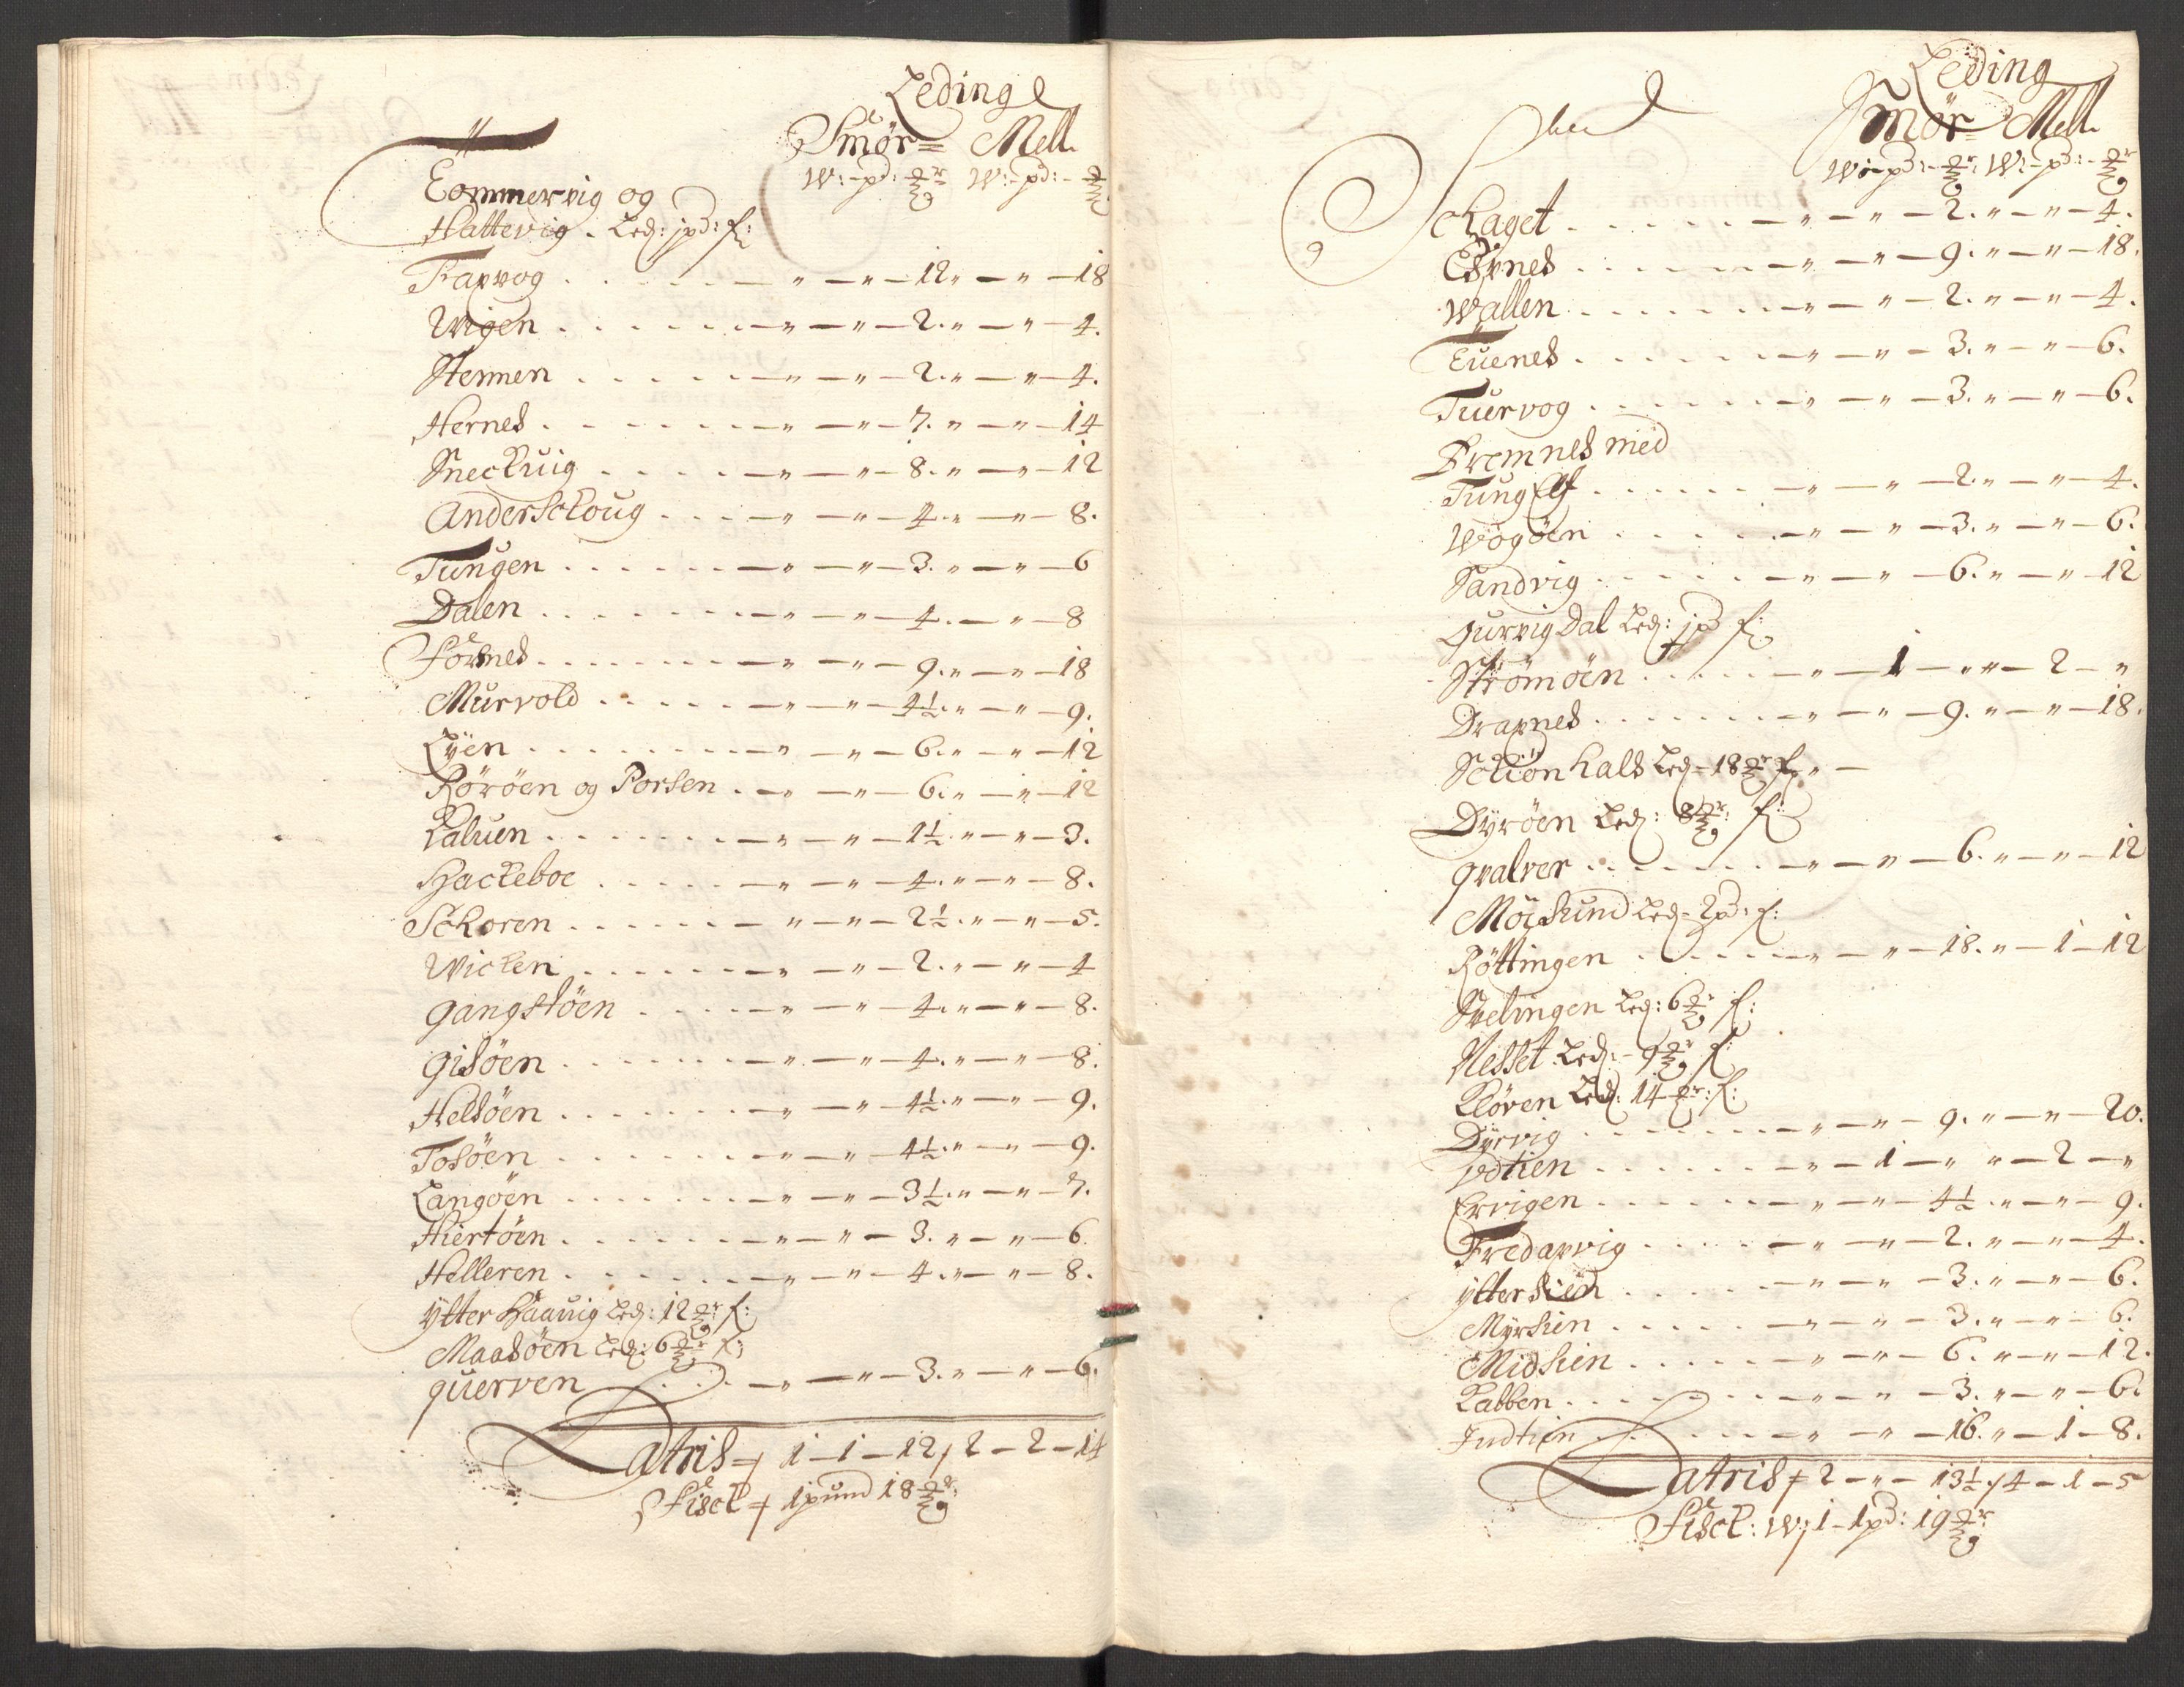 Leding
Smör= Mell
W:-pd:-㔾r W:-pd:-
Tömmervig og
Hattevig. Led: jpd: f:
Farvog . . . . . „ — „ — 12 „ — „ — 18
Wigen . . . . . „ — „ — 2. „ — „ — 4.
Stemmen . . . . . „ — „ — 2. „ — „ — 4.
Hernes . . . . . „ — „ — 7. „ — „ — 14
Sneckuig . . . . . „ — „ — 8. „ — „ — 12
Anderskoug . . . . . „ — „ — 4. „ — „ — 8.
Tungen . . . . . „ — „ — 3. „ — „ — 6
Dalen . . . . . „ — „ — 4. — „ — 8
Förnes . . . . . „ — „ — 9. „ — „ — 18
Murvold . . . . . „ — „ — 4½. „ — „ — 9.
Lÿen . . . . . „ — „ — 6. „ — „ — 12
Röröen og Porsen . — „ — „ — 6. „ — „ — 12
Kaluen . . . . . „ — „ — 1½. „ — „ — 3.
Hackeboe . . . . . „ — „ — 4. „ — „ — 8.
Skoren . . . . . „ — „ — 2½. „ — „ — 5.
Wicken . . . . . „ — „ — 2. „ — „ — 4
Gangstöen . . . . . „ — „ — 4. „ — „ — 8.
Gisöen . . . . . „ — „ — 4. „ — „ — 8.
Helsöen . . . . . „ — „ — 4½. „ — „ — 9.
Tosöen . . . . . „ — „ — 4½. „ — „ — 9.
Langöen . . . . . „ — „ — 3½. „ — „ — 7.
Hiertöen . . . . . „ — „ — 3. „ — „ — 6.
Helleren . . . . . „ — „ — 4. „ — „ — 8.
Ÿtter Haauig Led: 12 f:
Maasöen Led: 6 f:
Querven . . . . . „ — „ — 3. „ — „ — 6.
Latris ⁊ 1 — 1 — 12 / 2 — 2 — 14
Fisck ⁊ 1 pund 18
Leding
Smör= Mell
W:-pd:- W:-pd:-
Skaget . . . . . „ — „ — 2. „ — „ — 4.
Espnes . . . . . „ — „ — 9. „ — „ — 18.
Wallen . . . . . „ — „ — 2. „ — „ — 4.
Tüenes . . . . . „ — „ — 3. „ — „ — 6.
Tuervog . . . . . „ — „ — 3. „ — „ — 6.
Dremnes med
Tung Elf . . . . . „ — „ — 2. „ — „ — 4.
Wogöen . . . . . „ — „ — 3. „ — „ — 6.
Sandvig . . . . . „ — „ — 6. „ — „ — 12
Gurvig Dal Led: jpd f:
Strömöen . . . . . „ — 1 — „ „ — 2 — „
Drapnes . . . . . „ — „ — 9. „ — „ — 18.
Skion hals Led = 18 f: „ —
Dÿröen Led: 8 f:
Qvalver . . . . . „ — „ — 6. „ — „ — 12
Möisund Led = 2pd: f:
Röttingen . . . . . „ — „ — 18. „ — 1 — 12
Svelingen Led: 6 f:
Nesset Led: 9 f:
Klöven Led: 14 f:
Dÿrvig . . . . . „ — „ — 9. „ — „ — 20.
Ystien . . . . . „ — 1 — „ „ — 2 — „
Ervigen . . . . . „ — „ — 4½. „ — „ — 9.
Fredarvig . . . . . „ — „ — 2. „ — „ — 4.
Ÿttersien . . . . . „ — „ — 3. „ — „ — 6.
Mÿrsien . . . . . „ — „ — 3. „ — „ — 6.
Midsien . . . . . „ — „ — 6. „ — „ — 12.
Kabben . . . . . „ — „ — 3. „ — „ — 6.
Indtien . . . . . „ — „ — 16. „ — 1 — 8.
Latris ⁊ 2 — „ — 13½ / 4 — 1 — 5
Fisck: W: 1 — 1pd: 19